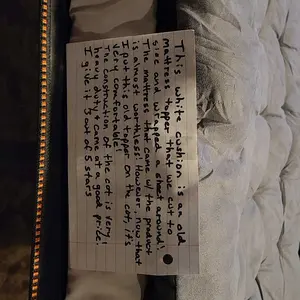 This white cushion is an old
mattress topper that we cut to
size and wrapped a sheet around!
The mattress that came w/ the product
is almost worthless! However, now that
I put this old topper on the cot, it's
very comfortable!
The construction of the cot is very
heavy duty & came at a good price!
I give it 3 out of 5 stars